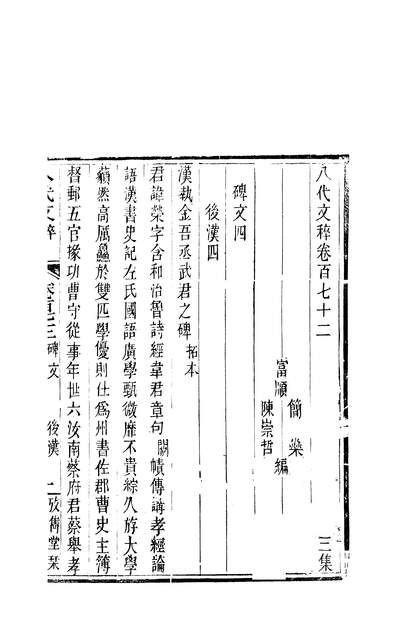 八代文粹卷百七十二 三集
富順 簡燊
陳崇哲 編
碑文四
後漢四
漢執金吾丞武君之碑 拓本
君諱榮字含和治魯詩經韋君章句闕幘傳講孝經論
語漢書史記左氏國語廣學甄微靡不貫綜久斿大學
藐然高厲鱻於雙匹學優則仕爲州書佐郡曹史主簿
督郵五官掾功曹守從事年卅六汝南蔡府君察舉孝
八代文粹 卷百七十二 碑文 後漢 一 攷雋堂栞